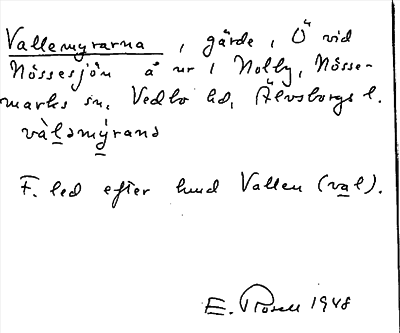 Vallemyrarna, gärde, Ö vid
Nössesjön å nr 1 Nolby, Nösse-
marks sn, Vedbo hd, Älvsborgs l.
vàləmýrana
F. led efter hund Vallen (val).
E. Rosell 1948